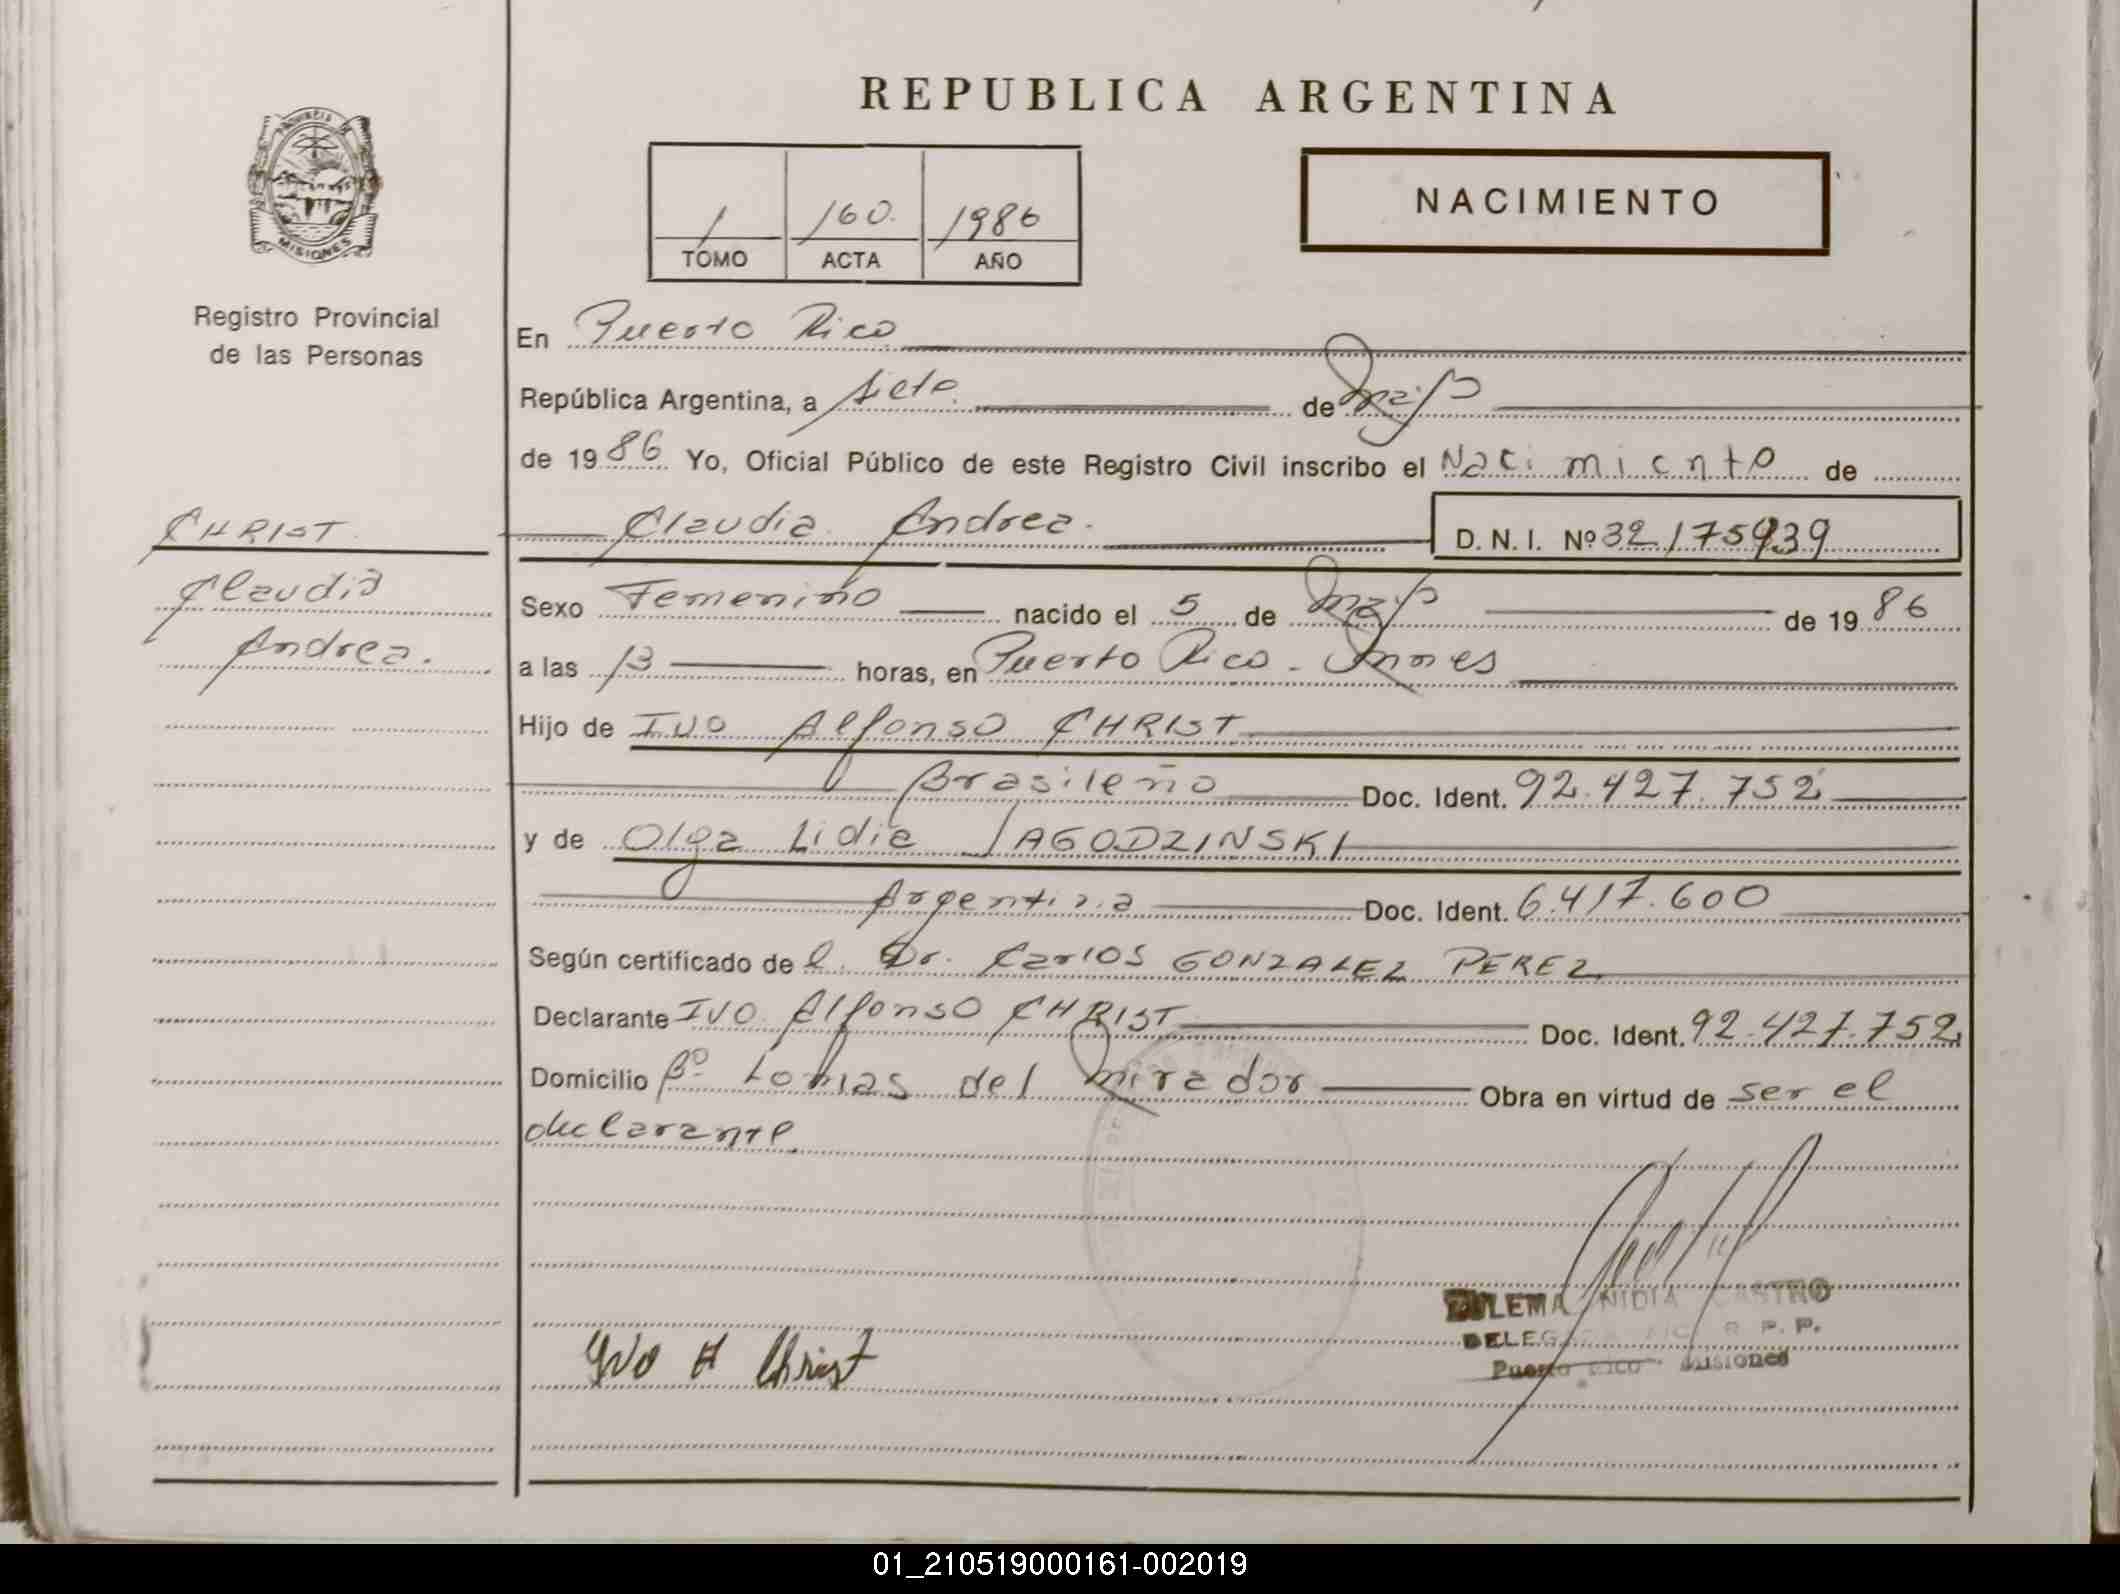 REPUBLICA ARGENTINA
PROVINCIA DE
MISIONES
1 160. 1986
TOMO ACTA AÑO
NACIMIENTO
Registro Provincial
de las Personas
CHRIST
Claudia
Andrea.
En Puerto Rico
República Argentina, a siete. de mayo
de 1986 Yo, Oficial Público de este Registro Civil inscribo el Nacimiento de
Claudia Andrea. D. N. I. Nº 32175939
Sexo Femenino nacido el 5 de mayo de 1986
a las 13 horas, en Puerto Rico - Mnes
Hijo de Ivo Alfonso CHRIST
Brasileño Doc. Ident. 92.427.752
y de Olga Lidia JAGODZINSKI
Argentina Doc. Ident. 6.417.600
Según certificado de l. Dr. Carlos GONZALEZ PEREZ
Declarante Ivo Alfonso CHRIST Doc. Ident. 92.427.752
Domicilio Bº Lomas del mirador Obra en virtud de ser el
declarante.
Ivo A Christ
ZULEMA NIDIA CASTRO
R. P. P.
Puerto Rico - Misiones
01_210519000161-002019